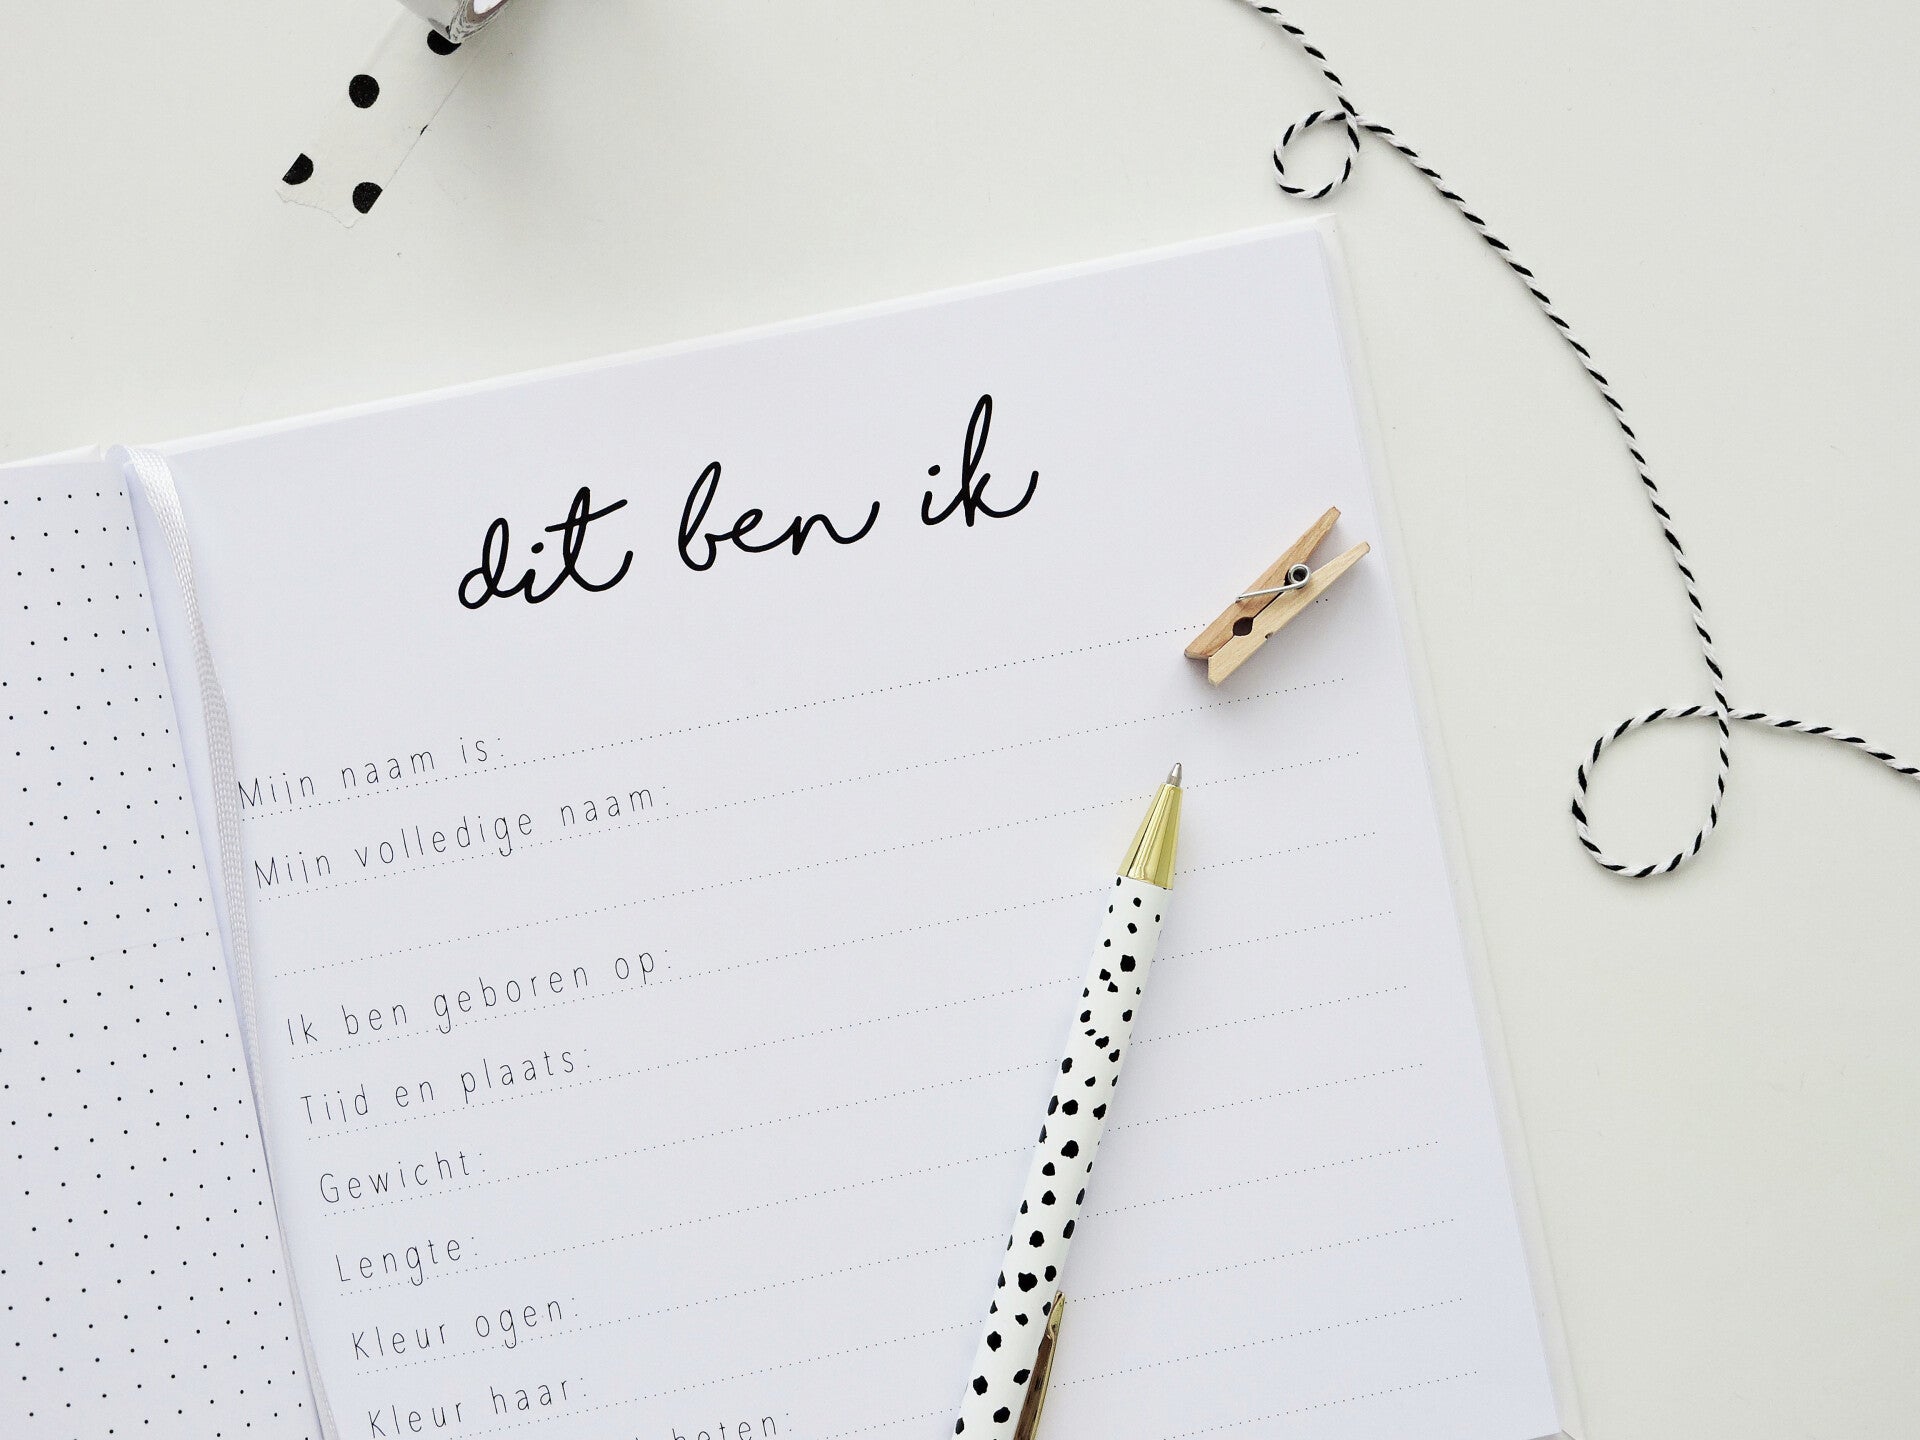 dit ben ik
Mijn naam is:
Mijn volledige naam:
Ik ben geboren op:
Tijd en plaats:
Gewicht:
Lengte:
Kleur ogen:
Kleur haar:
heten: